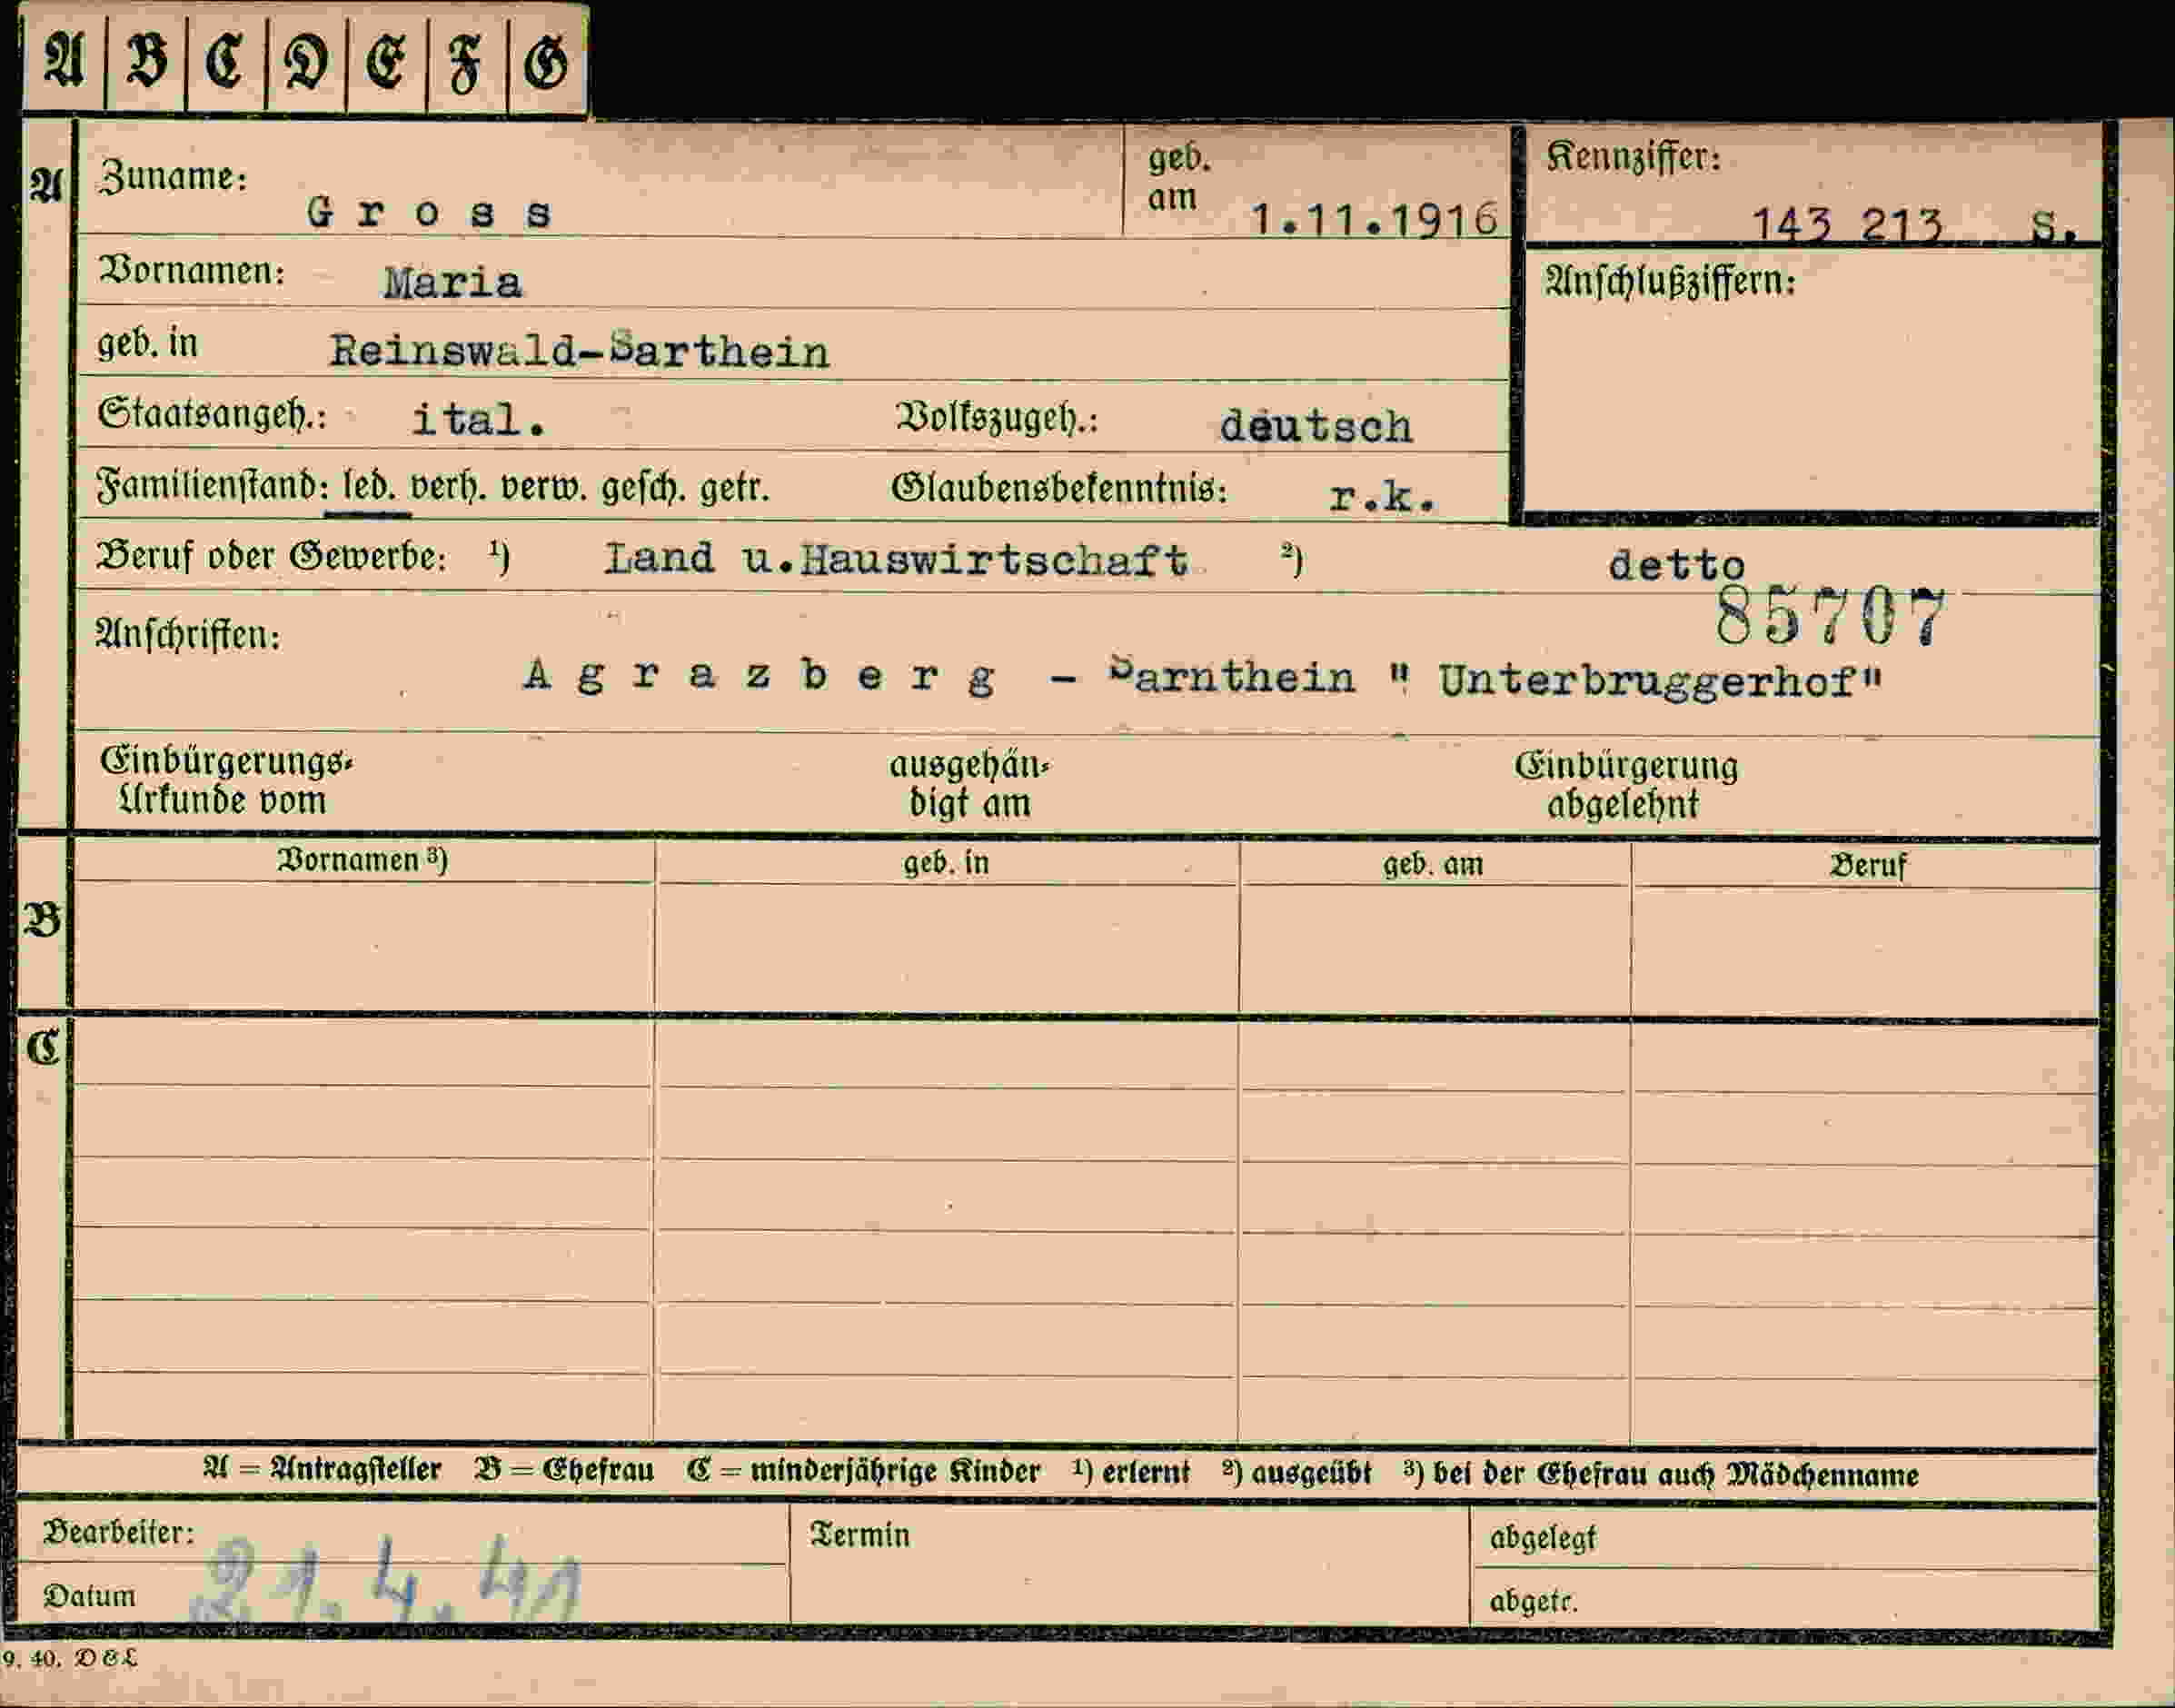 A B C D E F G
A Zuname: Gross geb. am 1.11.1916 Kennziffer: 143 213 S.
Vornamen: Maria Anschlußziffern:
geb. in Reinswald-Sarthein
Staatsangeh.: ital. Volkszugeh.: deutsch
Familienstand: led. verh. verw. gesch. getr. Glaubensbekenntnis: r.k.
Beruf oder Gewerbe: ¹) Land u.Hauswirtschaft ²) detto
85707
Anschriften:
Agrazberg - Sarnthein " Unterbruggerhof"
Einbürgerungs- ausgehän- Einbürgerung
Urkunde vom digt am abgelehnt
Vornamen ³) geb. in geb. am Beruf
B
C
A = Antragsteller B = Ehefrau C = minderjährige Kinder ¹) erlernt ²) ausgeübt ³) bei der Ehefrau auch Mädchenname
Bearbeiter: Termin abgelegt
Datum 21.4.41 abgetr.
9. 40. D & L